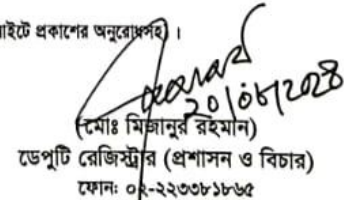 াইটে প্রকাশের অনুরোধসহ) ।
২০/০৮/২০২৪
(মোঃ মিজানুর রহমান)
ডেপুটি রেজিস্ট্রার (প্রশাসন ও বিচার)
ফোনঃ ০২-২২৩৩৮১৮৬৫